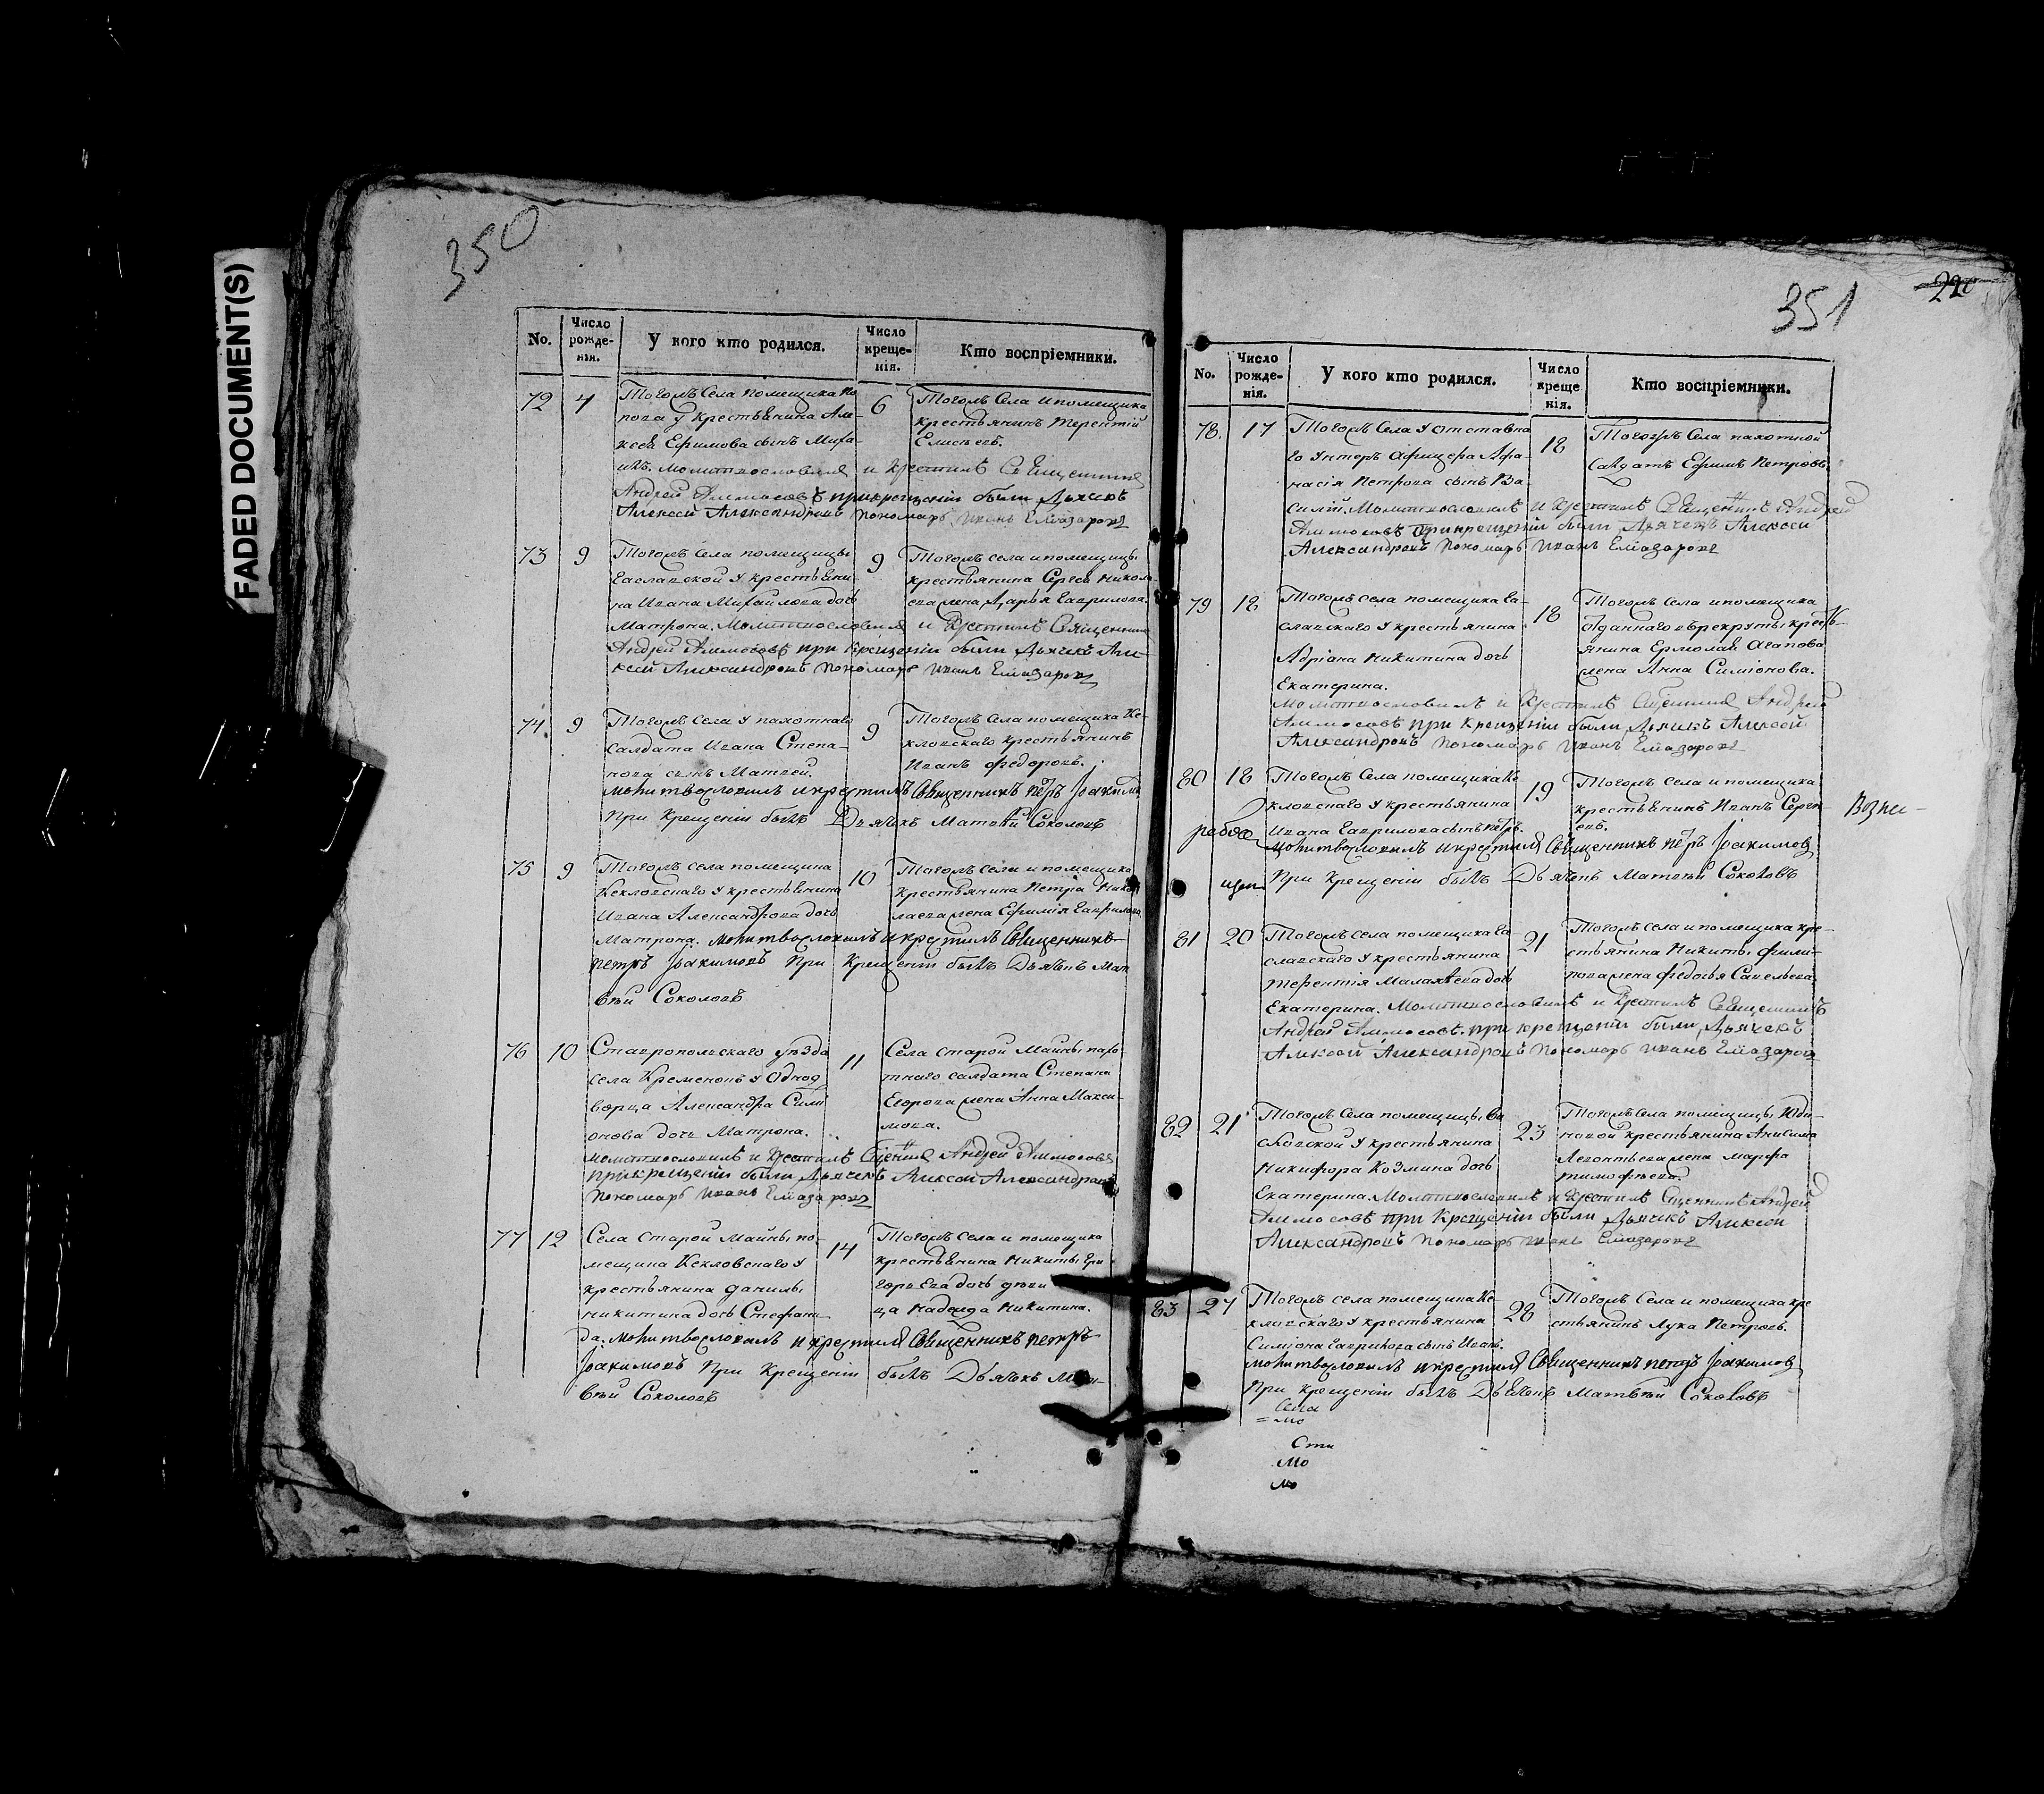 FADED DOCUMENT(S)
350
No.
Число рожде-нія.
У кого кто родился.
Число креще-нія.
Кто воспріемники.
72 4
Тогожъ Села помещика По-
пова у крестьянина Але-
ксея Ефимова сынъ Миха-
илъ. Молитвословилъ и крестилъ Священникъ
Андрей Аммосовъ при крещеніи были Дьячекъ
Алексей Александровъ пономарь Иванъ Елиазаровъ
6
Тогожъ Села и помещика
крестьянинъ Терентій
Елисеевъ.
73 9
Тогожъ Села помещицы
Еаславской у крестьяни-
на Ивана Михайлова дочь
Матрона. Молитвословилъ и крестилъ Священникъ
Андрей Аммосовъ при крещеніи были Дьячекъ Але-
ксей Александровъ пономарь Иванъ Елиазаровъ
9
Тогожъ села и помещицы
крестьянина Сергея Никола-
ева жена Дарья Гаврилова.
74. 9
Тогожъ Села у пахотнаго
салдата Ивана Степа-
нова сынъ Матвей.
молитвословилъ и крестилъ Священникъ Петръ Іоакимо
При Крещеніи былъ Дьячекъ Матвѣй Соколовъ
9
Тогожъ Села помещика Ке-
кловскаго крестьянинъ
Иванъ Федоровъ.
75 9
Тогожъ села помещика
Кекловскаго у крестьянина
Ивана Александрова дочь
Матрона. молитвословилъ и крестилъ Священникъ
Петръ Іоакимовъ При Крещеніи былъ Дьячекъ Мат
вѣй Соколовъ
10
Тогожъ села и помещика
крестьянина Петра Нико
лаева жена Ефимія Гаврилова
76 10
Ставропольскаго уѣзда
села Кременокъ у Однод
ворца Александра Сими
онова дочь Матрона.
молитвословилъ и крестилъ Андрей Аммосовъ
при крещеніи были Дьячекъ Алексей Александровъ
пономарь Иванъ Елиазаровъ
11
Села Старой Майны пахо-
тнаго салдата Степана
Егорова жена Анна Макси-
мова.
77 12
Села Старой Майны по-
мещика Кекловскаго у
крестьянина Данилы
Никитина дочь Стефани
да. молитвословилъ и крестилъ Священникъ Петръ
Іоакимовъ При Крещеніи былъ Дьячекъ Мат
вѣй Соколовъ
14
Тогожъ Села и помещика
крестьянина Никиты Гри
горьева дочь деви
ца Надежда Никитина.
351
No.
Число рожде-нія.
У кого кто родился.
Число креще нія.
Кто воспріемники.
78. 17
Тогожъ Села у отставна
го Унтеръ Афицера Афа-
насія Петрова сынъ Ва-
силій. Молитвословилъ и крестилъ Священникъ Андрей
Аммосовъ при крещеніи были Дьячекъ Алексей
Александровъ пономарь Иванъ Елиазаровъ
18
Тогожъ Села пахотной
Салдатъ Ефимъ Петровъ
79 18
Тогожъ Села помещика Еа-
славскаго у крестьянина
Адріана Никитина дочь
Екатерина.
молитвословилъ и крестилъ Андрей
Аммосовъ при Крещеніи были Дьячекъ Алексей
Александровъ пономарь Иванъ Елиазаровъ
18
Тогожъ Села и помещика
отданнаго в рекруты кресть-
янина Ермолая Агапова
жена Анна Симіонова.
80 18
Тогожъ Села помещика Ке
кловскаго у крестьянина
Ивана Гаврилова сынъ Петръ.
молитвословилъ и крестилъ Священникъ Петръ Іоакимовъ
При Крещеніи былъ Дьячекъ Матвѣй Соколовъ
19
Тогожъ Села и помещика
крестьянинъ Иванъ Серге
евъ.
Возне-
81 20
Тогожъ Села помещика Еа-
славскаго у крестьянина
Терентія Малахѣева дочь
Екатерина. Молитвословилъ и крестилъ Священникъ
Андрей Аммосовъ. при крещеніи были Дьячекъ
Алексей Александровъ пономарь Иванъ Елиазаровъ
21
Тогожъ села и помещика кре-
стьянина Никиты Фили-
пова жена Федосья Савельева
82 21
Тогожъ Села помещицы Еа
славской у крестьянина
Никифора Козмина дочь
Екатерина. Молитвословилъ и крестилъ Андрей
Аммосовъ при Крещеніи были Дьячекъ Алексей
Александровъ пономарь Иванъ Елиазаровъ
23
Тогожъ Села помещицы Юди-
новой крестьянина Анисима
Леонтьева жена Марфа
Тимофѣева.
83 27
Тогожъ села помещика Ке-
кловскаго у крестьянина
Симіона Гаврилова сынъ Иванъ.
молитвословилъ и крестилъ Священникъ Петръ Іоакимовъ
При крещеніи былъ Дьячекъ Матвѣй Соколовъ
28
Тогожъ Села и помещика кре
стьянинъ Лука Петровъ.
Села
мо
Ста
Мо
мо